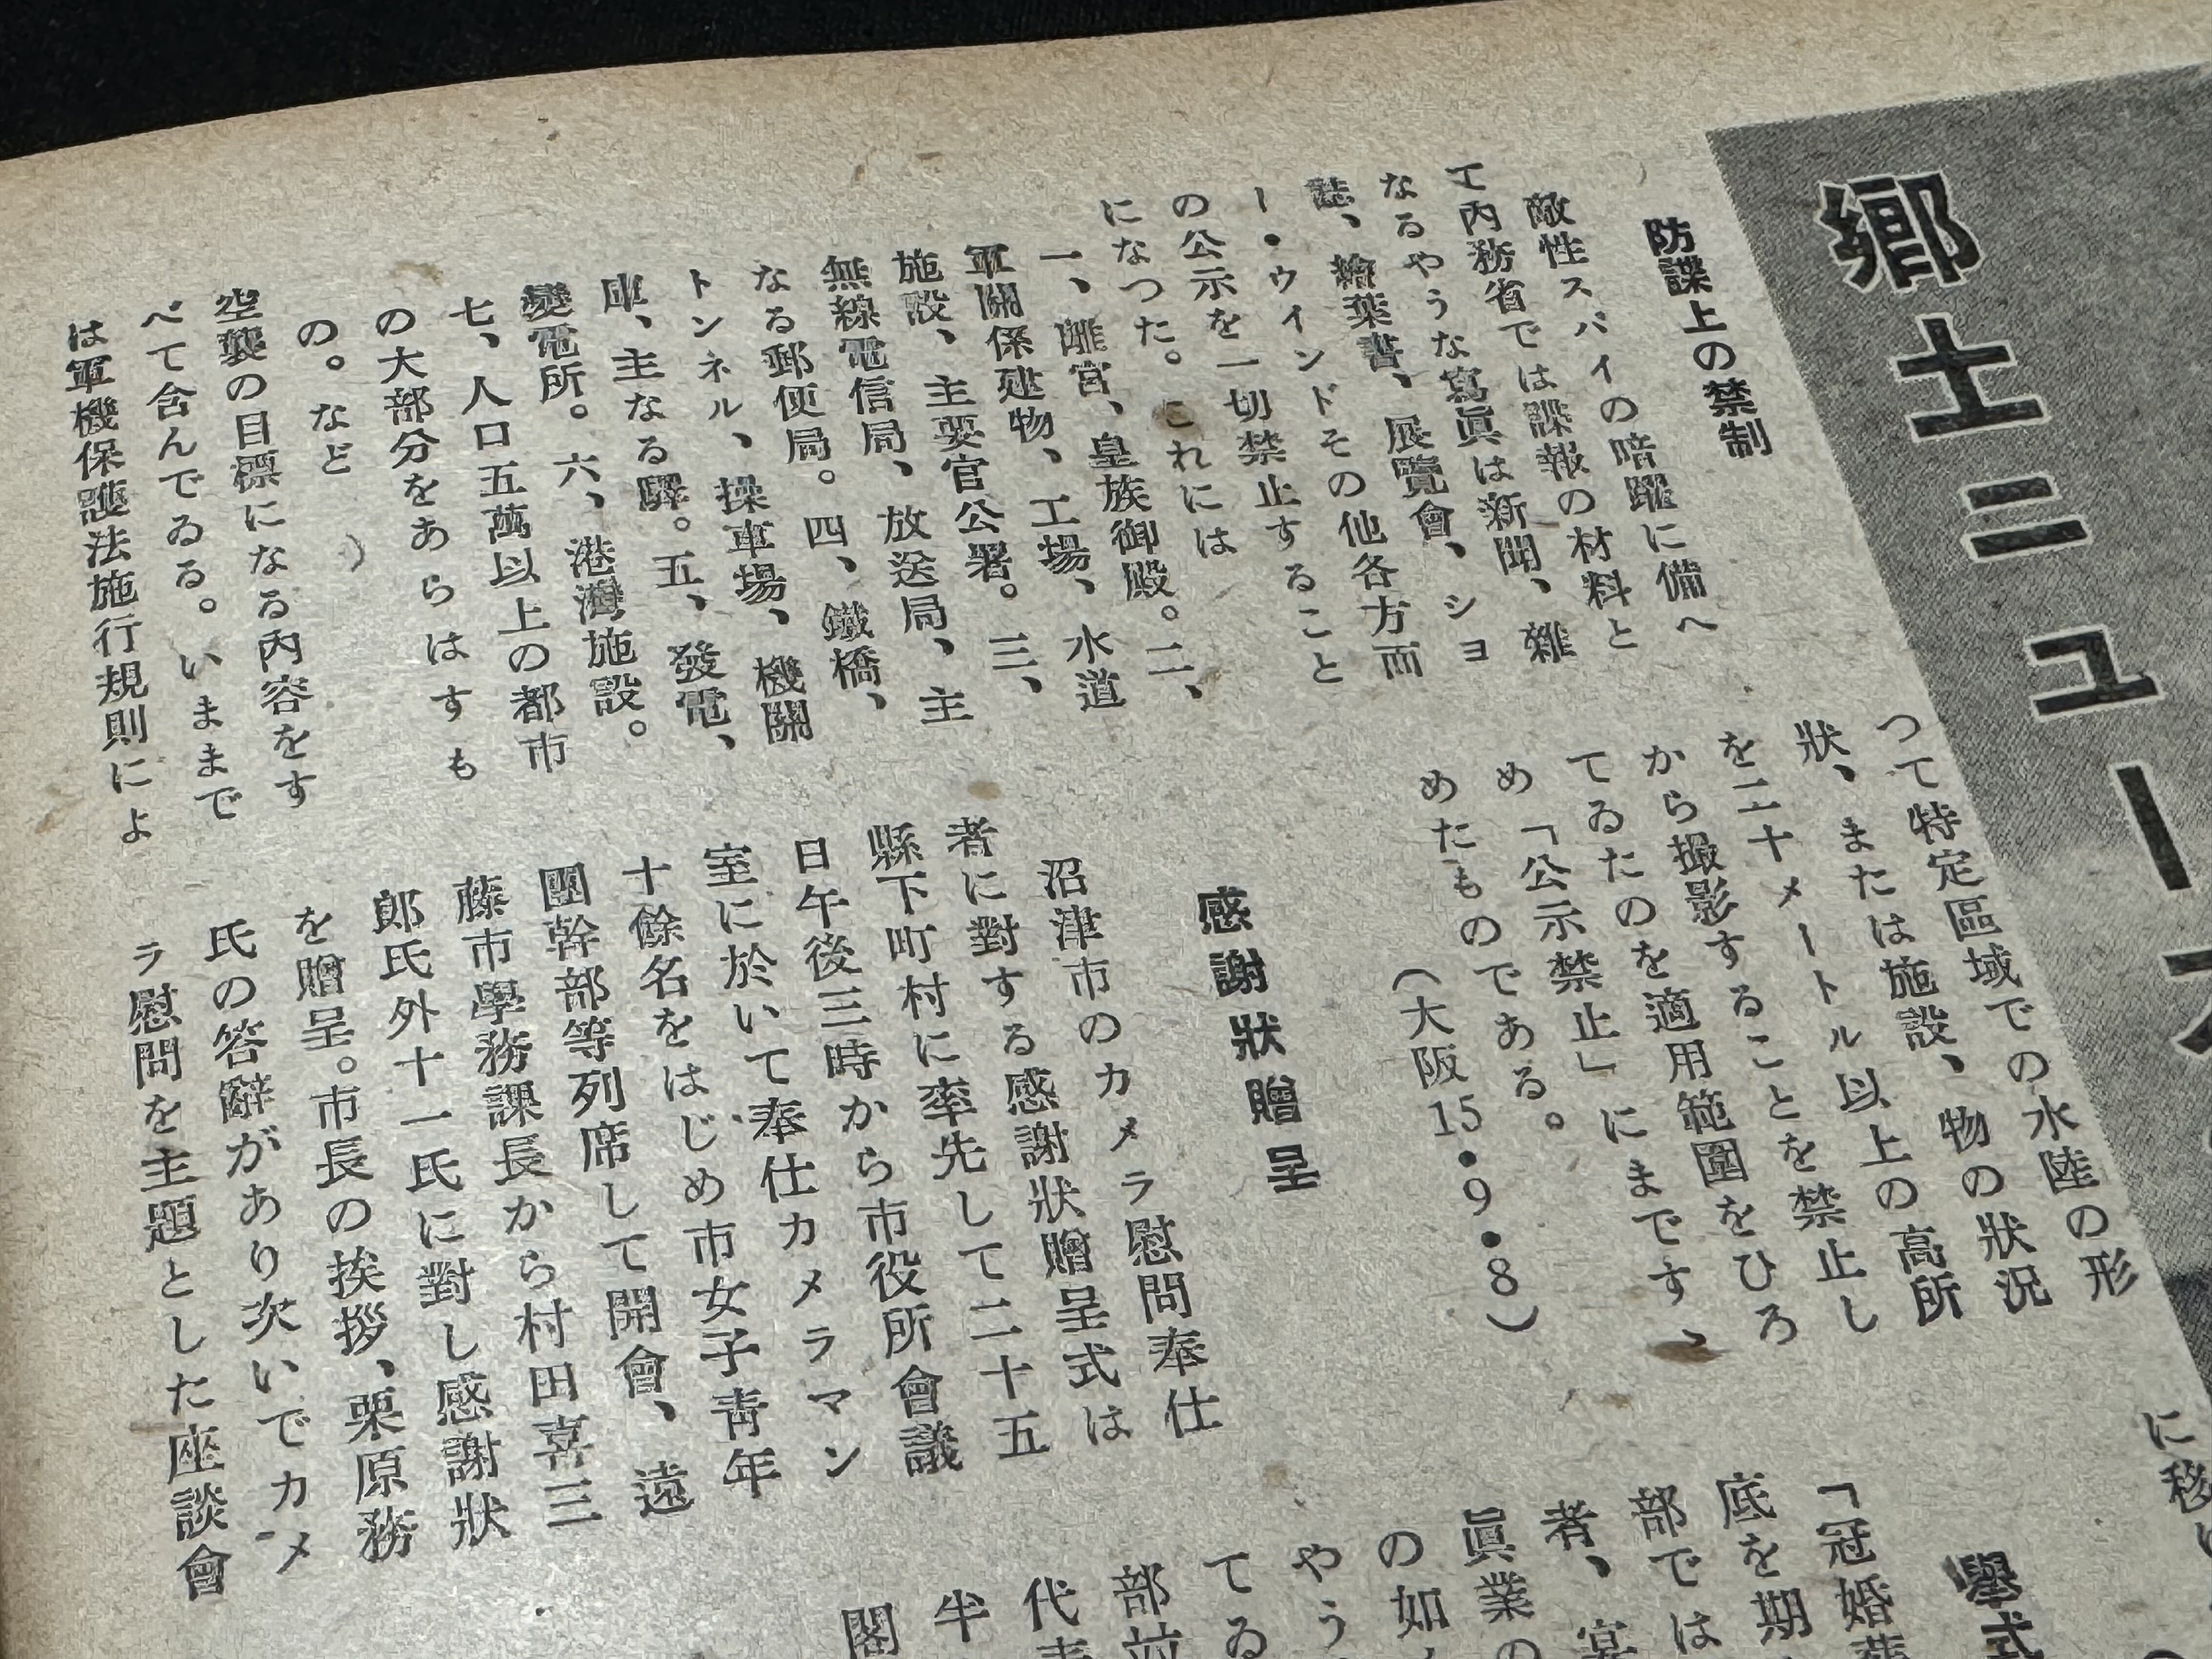 郷土ニュース
防諜上の禁制
敵性スパイの暗躍に備へ
て内務省では諜報の材料と
なるやうな寫眞は新聞、雜
誌、繪葉書、展覽會、ショ
ー・ウインドその他各方面
の公示を一切禁止すること
になつた。これには
一、離宮、皇族御殿。二、
軍關係建物、工場、水道
施設、主要官公署。三、
無線電信局、放送局、主
なる郵便局。四、鐵橋、
トンネル、操車場、機關
庫、主なる驛。五、發電、
變電所。六、港灣施設。
七、人口五萬以上の都市
の大部分をあらはすも
の。など
空襲の目標になる內容をす
べて含んでゐる。いままで
は軍機保護法施行規則によ
つて特定區域での水陸の形
狀、または施設、物の狀況
を二十メートル以上の高所
から撮影することを禁止し
てゐたのを適用範圍をひろ
め「公示禁止」にまですゝ
めたものである。
（大阪15・9・8）
感謝狀贈呈
沼津市のカメラ慰問奉仕
者に對する感謝狀贈呈式は
縣下町村に率先して二十五
日午後三時から市役所會議
室に於いて奉仕カメラマン
十餘名をはじめ市女子靑年
團幹部等列席して開會、遠
藤市學務課長から村田喜三
郎氏外十一氏に對し感謝狀
を贈呈。市長の挨拶、栗原務
氏の答辭があり次いでカメ
ラ慰問を主題とした座談會
に移
擧式
「冠婚葬
底を期
部では
者、宴
眞業の
の如
やう
てゐ
部並
代表
半
閣